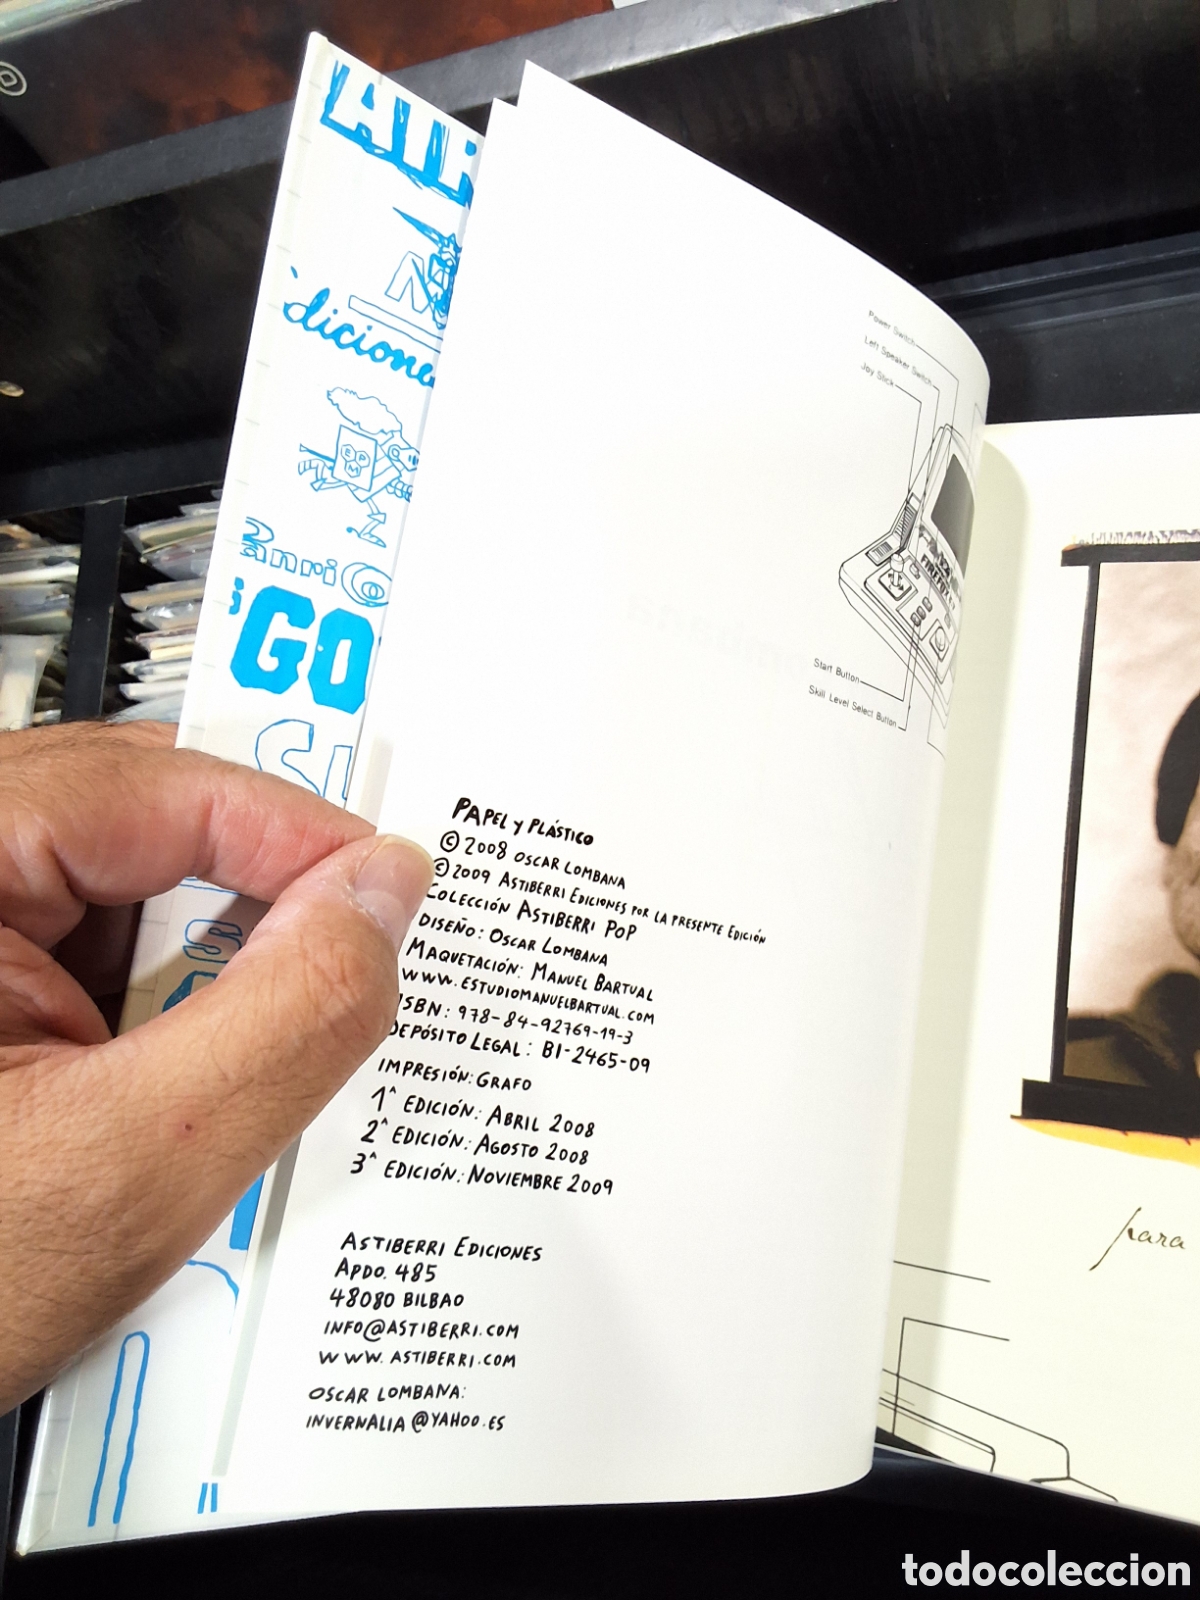 AIR
diciones
EPM
Panri
GO
Power Switch
Left Speaker Switch
Joy Stick
Start Button
Skill Level Select Button
PAPEL y PLÁSTICO
© 2008 OSCAR LOMBANA
© 2009 ASTIBERRI EDICIONES POR LA PRESENTE EDICIÓN
COLECCIÓN ASTIBERRI POP
DISEÑO: OSCAR LOMBANA
MAQUETACIÓN: MANUEL BARTUAL
WWW.ESTUDIOMANUELBARTUAL.COM
ISBN: 978-84-92769-19-3
DEPÓSITO LEGAL: BI-2465-09
IMPRESIÓN: GRAFO
1ª EDICIÓN: ABRIL 2008
2ª EDICIÓN: AGOSTO 2008
3ª EDICIÓN: NOVIEMBRE 2009
ASTIBERRI EDICIONES
APDO. 485
48080 BILBAO
INFO@ASTIBERRI.COM
WWW.ASTIBERRI.COM
OSCAR LOMBANA:
INVERNALIA@YAHOO.ES
para
todocoleccion